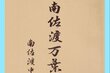 南佐渡万葉
南佐渡中